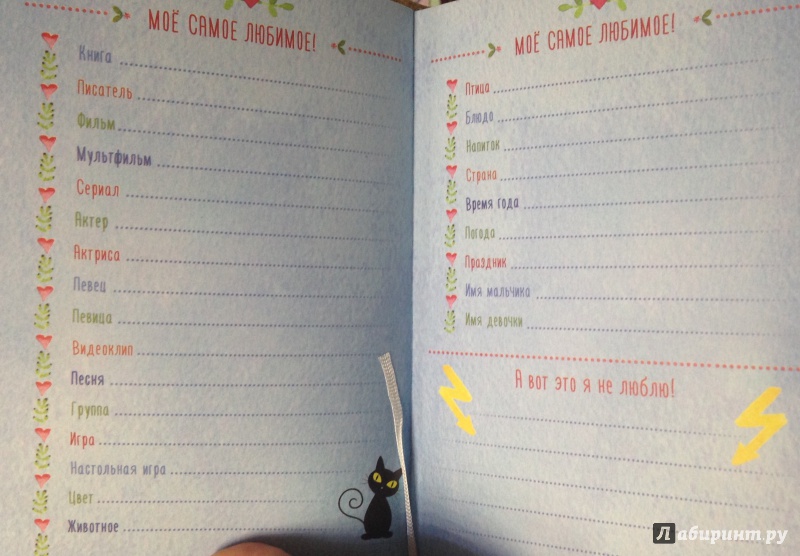 МОЁ САМОЕ ЛЮБИМОЕ!
Книга
Писатель
Фильм
Мультфильм
Сериал
Актер
Актриса
Певец
Певица
Видеоклип
Песня
Группа
Игра
Настольная игра
Цвет
Животное
МОЁ САМОЕ ЛЮБИМОЕ!
Птица
Блюдо
Напиток
Страна
Время года
Погода
Праздник
Имя мальчика
Имя девочки
А вот это я не люблю!
Лабиринт.ру